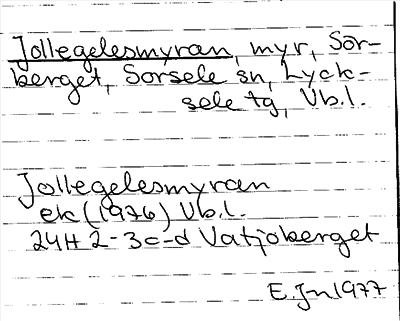 Jollegelesmyran, myr, Sör-
berget, Sorsele sn, Lyck-
sele tg, Vb.l.
Jollegelesmyran
ek (1976) Vb.l.
24H 2-3c-d Vatjoberget
E.Jn 1977